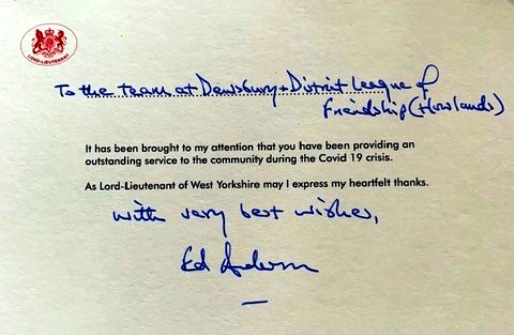 LORD-LIEUTENANT
To the team at Dewsbury + District League of
Friendship (Howlands)
It has been brought to my attention that you have been providing an
outstanding service to the community during the Covid 19 crisis.
As Lord-Lieutenant of West Yorkshire may I express my heartfelt thanks.
with very best wishes,
Ed Anderson